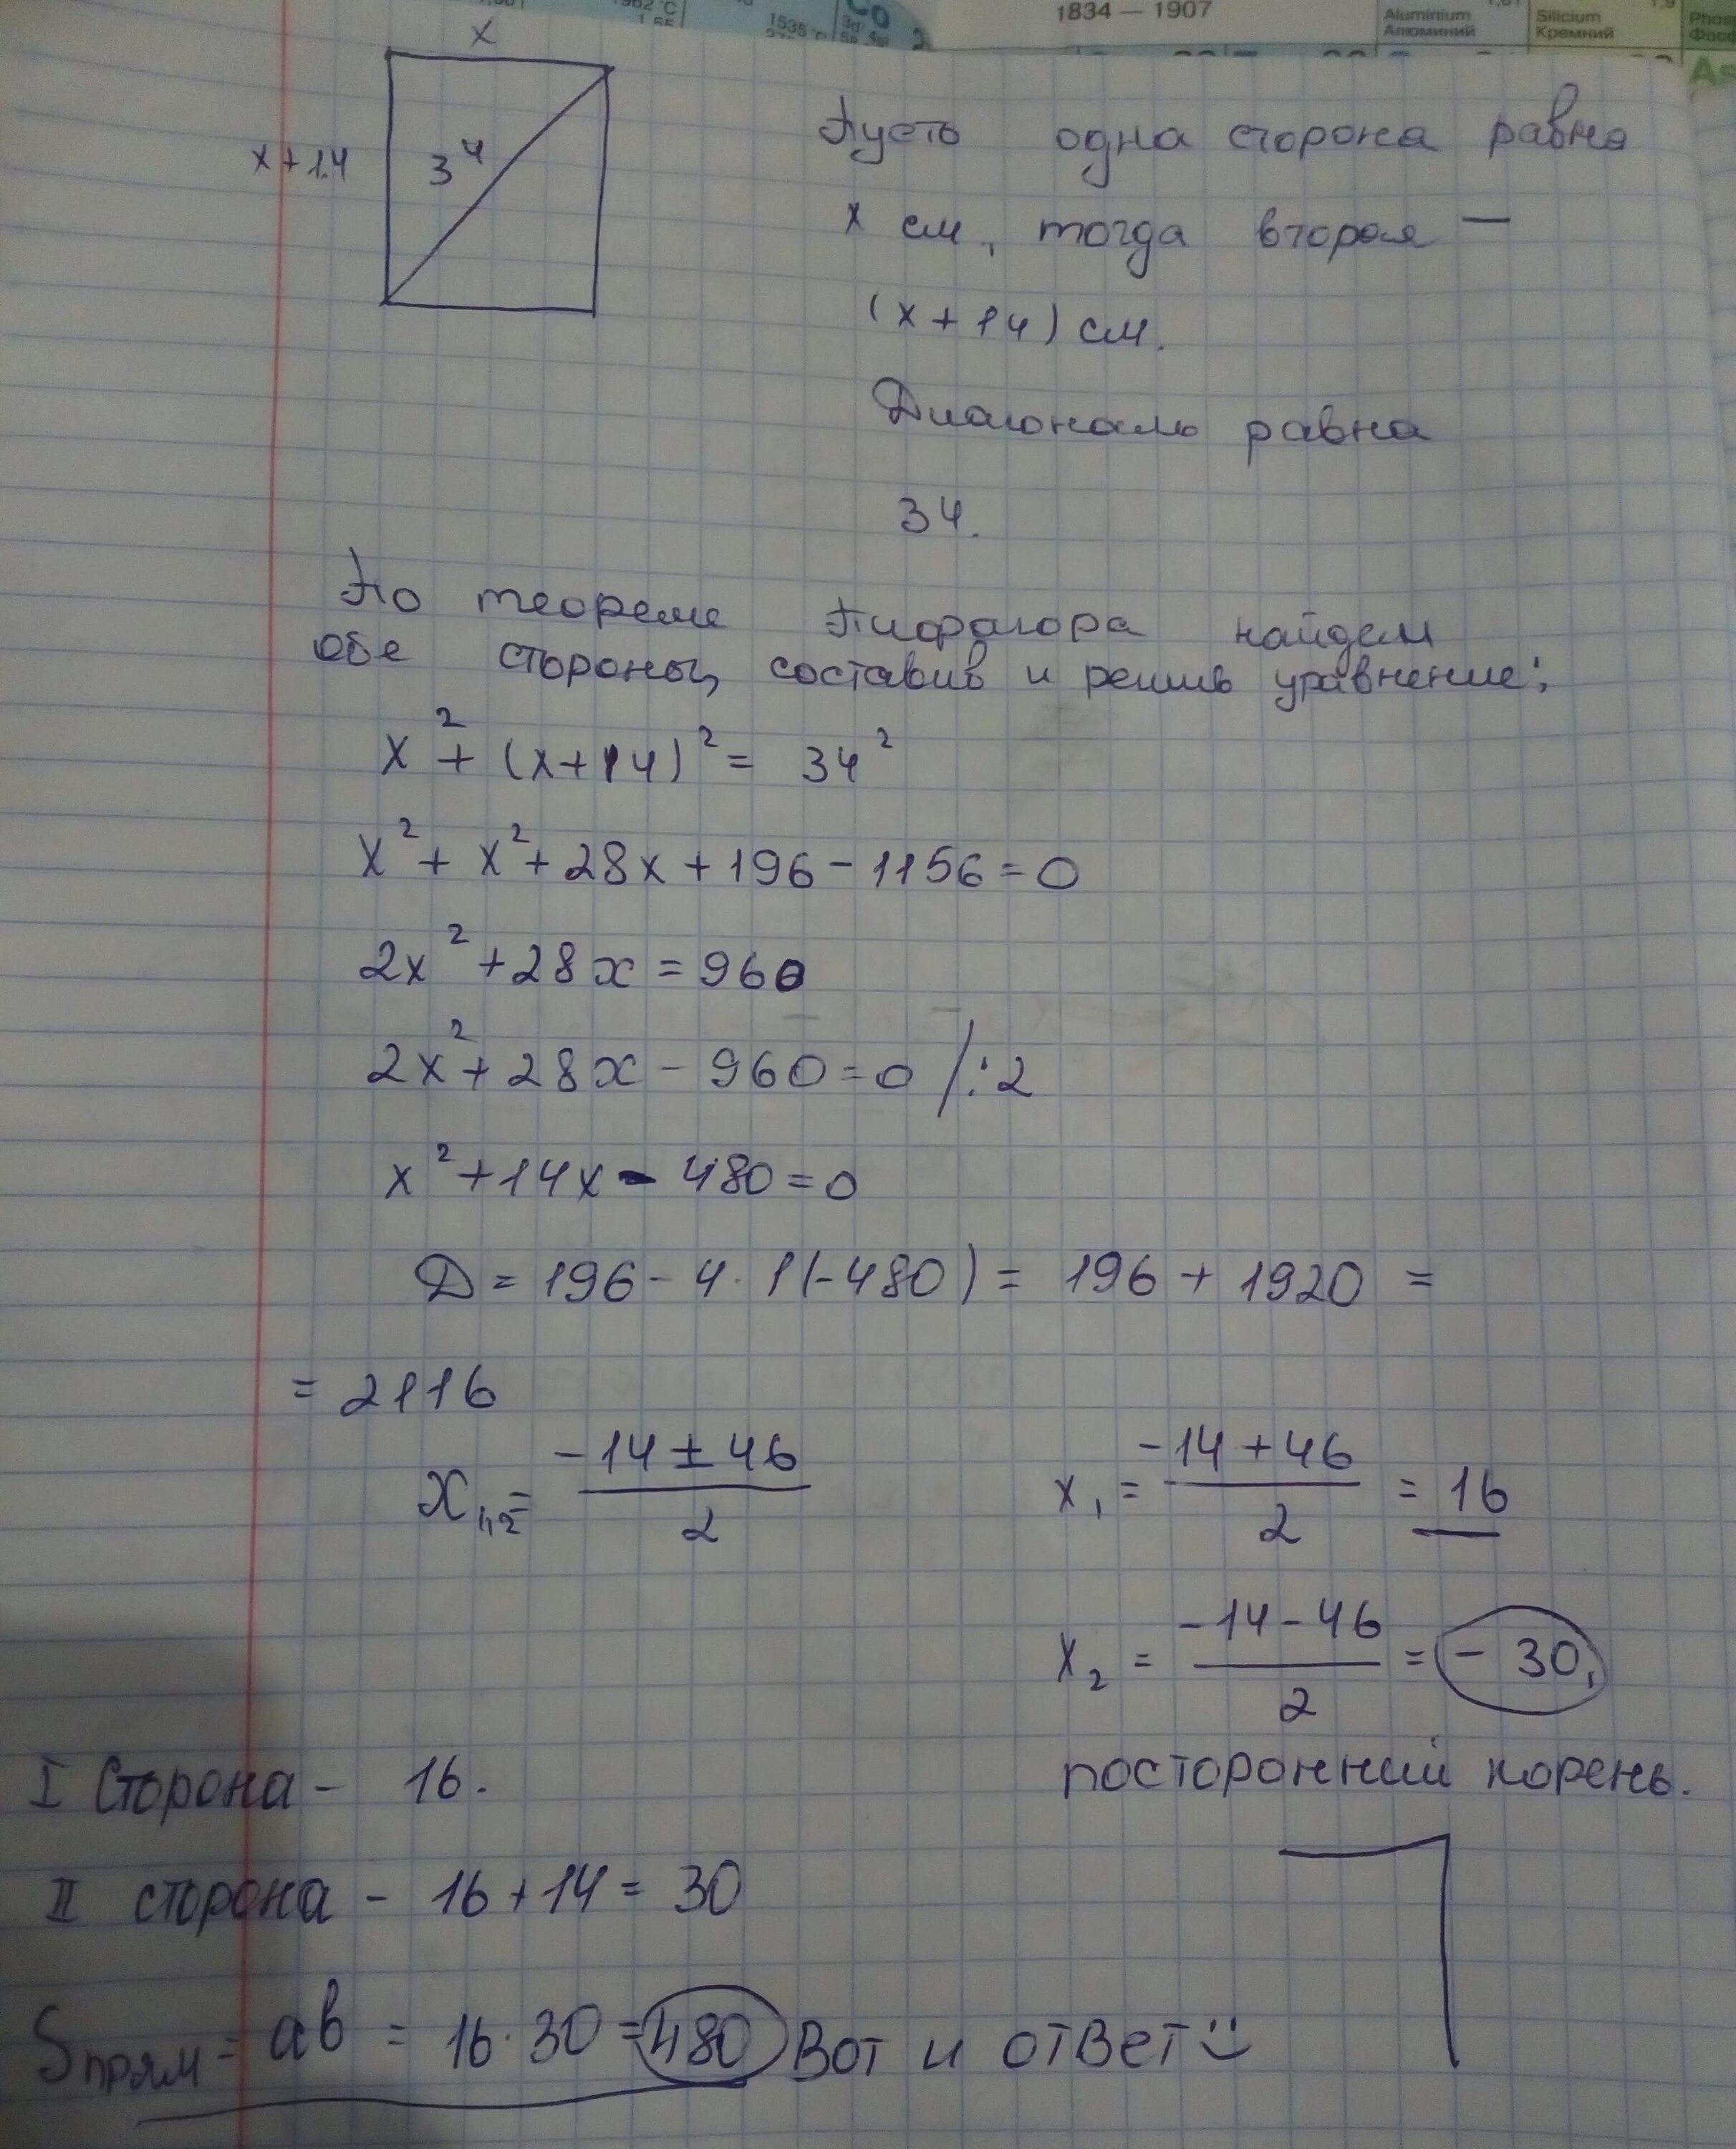 1834 — 1907
Aluminium
Алюминий
Silicium
Кремний
1535 °C
Co
As
x
x+14
34
Пусть одна сторона равна
x см, тогда вторая —
(x+14) см.
Диагональ равна
34.
По теореме Пифагора найдем
обе стороны, составив и решив уравнение:
x² + (x+14)² = 34²
x² + x² + 28x + 196 - 1156 = 0
2x² + 28x = 960
2x² + 28x - 960 = 0 /:2
x² + 14x - 480 = 0
D = 196 - 4 · 1(-480) = 196 + 1920 =
= 2116
x₁,₂ = (-14 ± 46)/2
x₁ = (-14 + 46)/2 = 16
x₂ = (-14 - 46)/2 = -30,
посторонний корень.
I Сторона - 16.
II сторона - 16 + 14 = 30
Sпрям = ab = 16 · 30 = 480 Вот и ответ